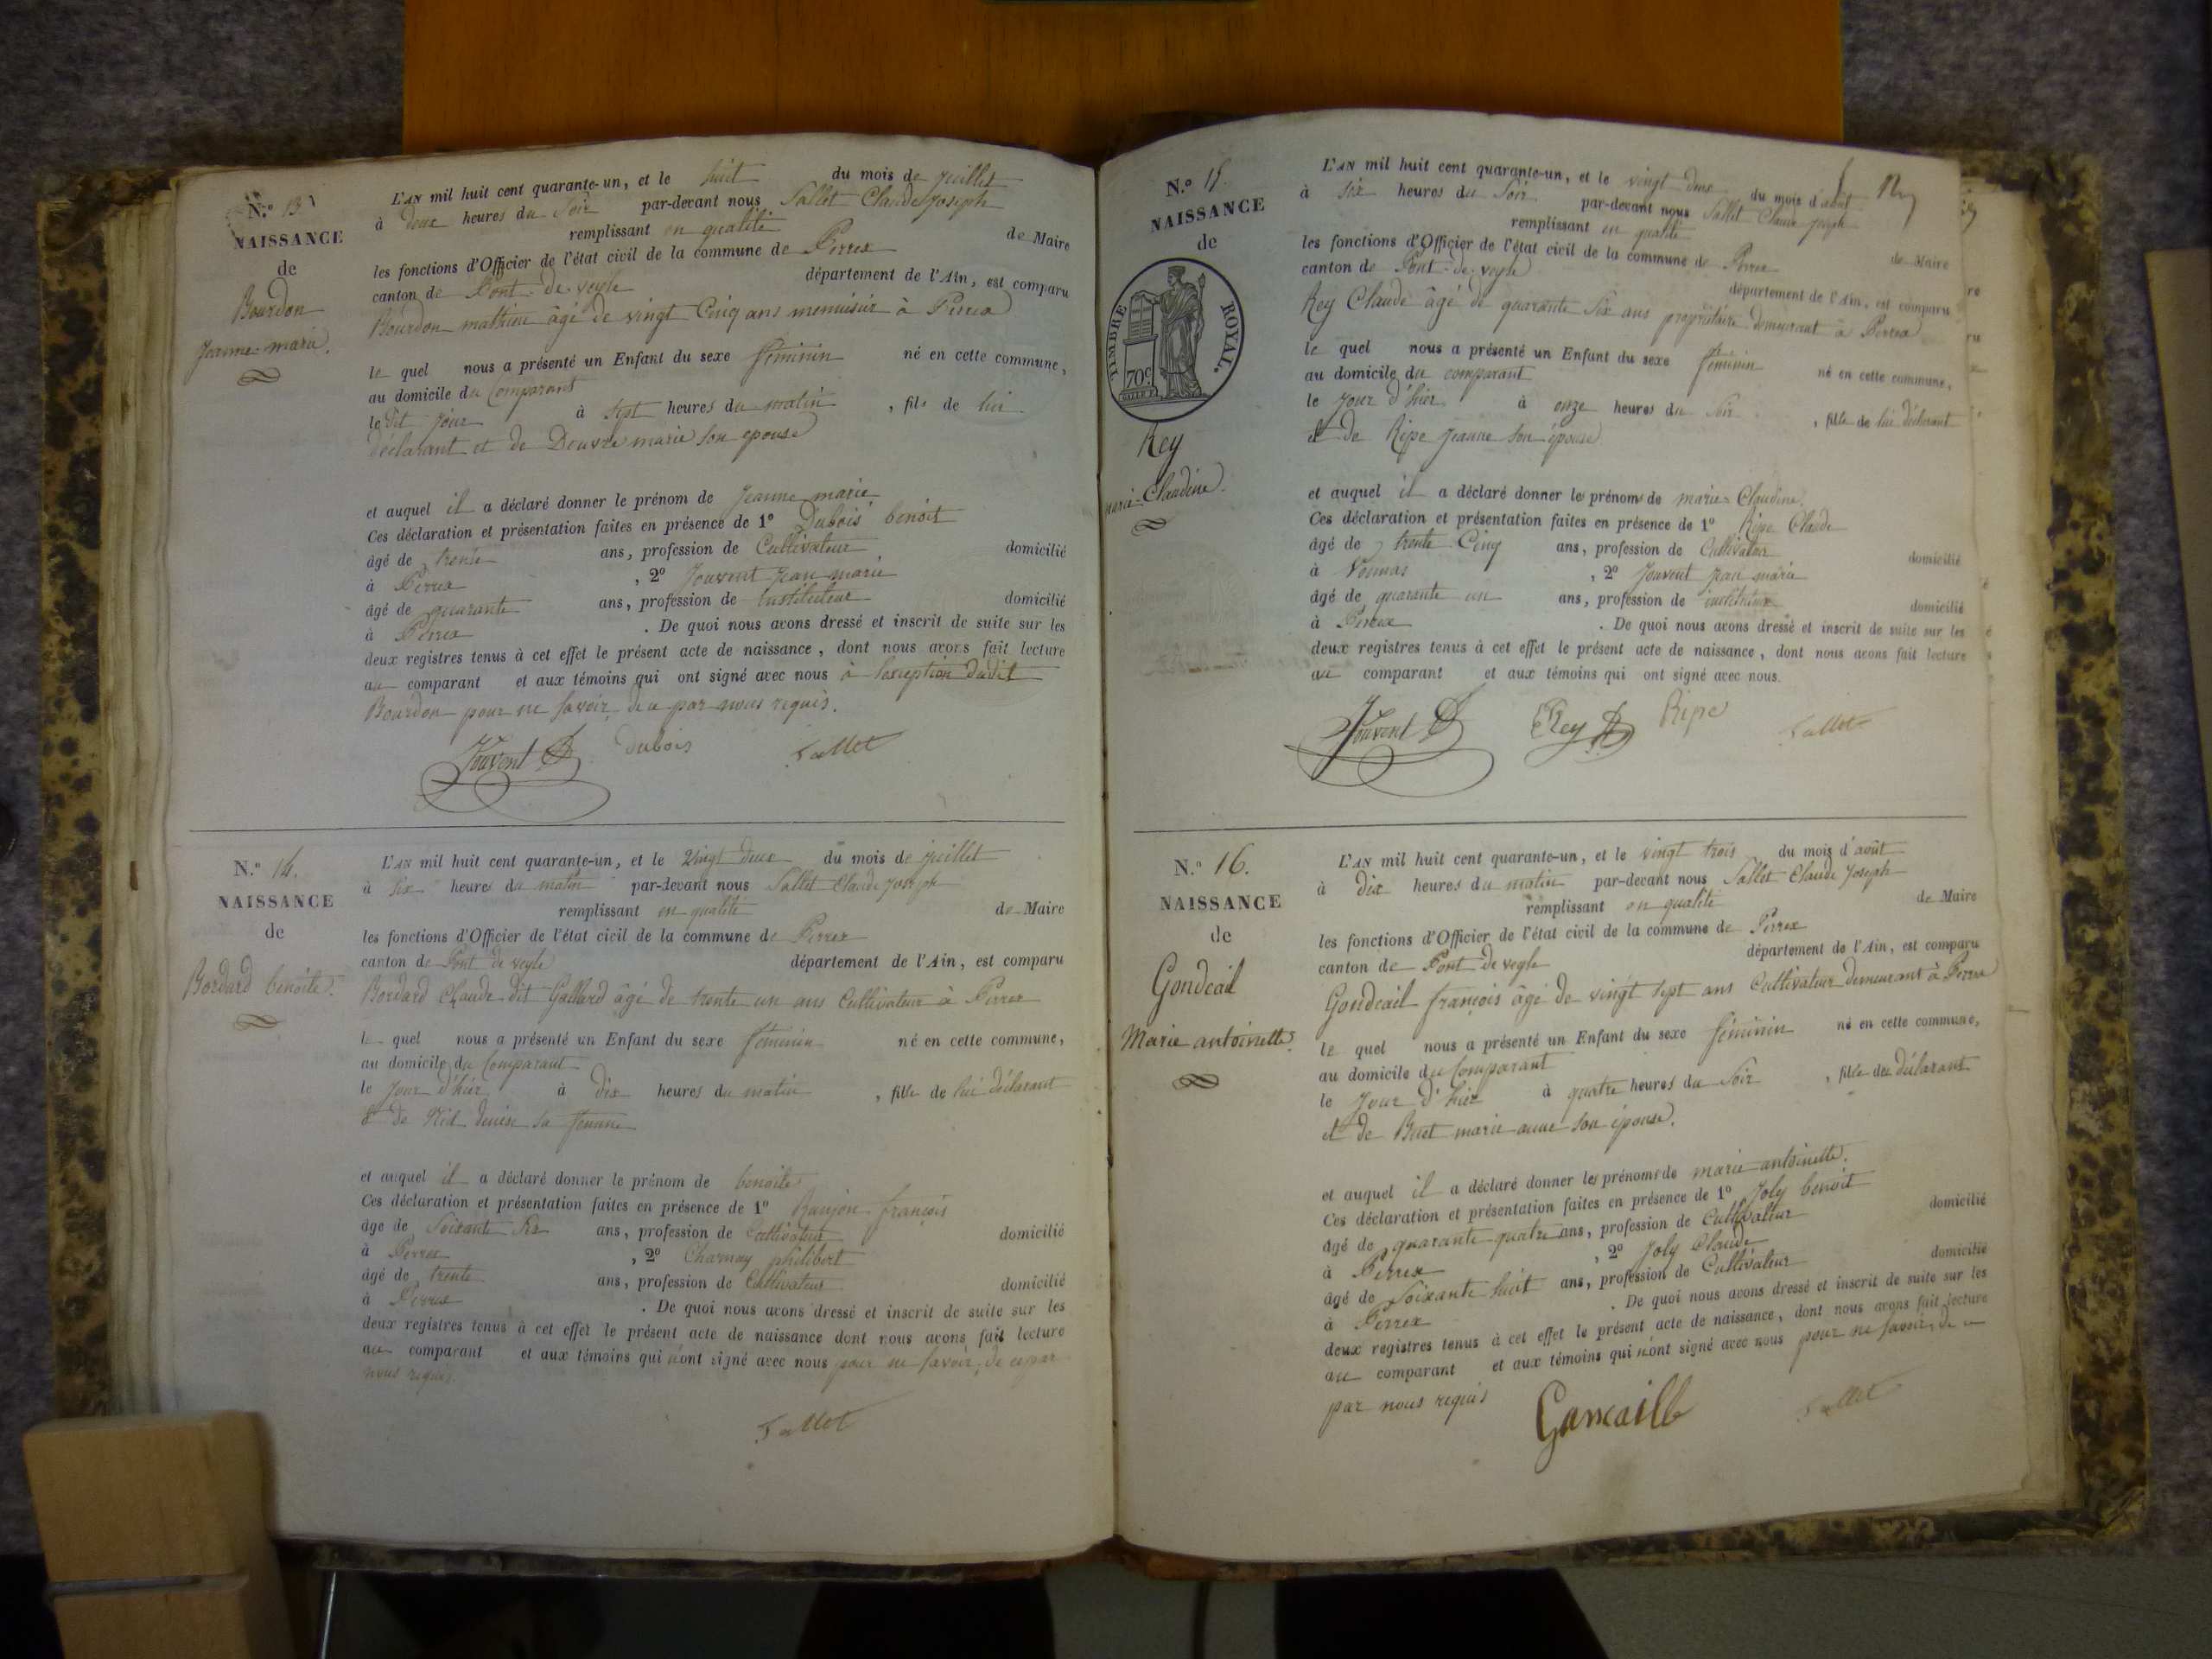 N.º 13
NAISSANCE
de
Bourdon
Jeanne-marie.
L'AN mil huit cent quarante-un, et le huit du mois de juillet
à deux heures du soir par-devant nous Sallet Claude Joseph
remplissant en qualité de Maire
les fonctions d'Officier de l'état civil de la commune de Perrex
canton de Pont-de-veyle département de l'Ain, est comparu
Bourdon mathieu âgé de vingt Cinq ans menuisier à Perrex
le quel nous a présenté un Enfant du sexe féminin né en cette commune,
au domicile du Comparant
le dit jour à sept heures du matin, fils de lui
déclarant et de marie son épouse
et auquel il a déclaré donner le prénom de Jeanne marie
Ces déclaration et présentation faites en présence de 1º Dubois benoit
âgé de trente ans, profession de Cultivateur domicilié
à Perrex, 2º Jouvent Jean marie
âgé de quarante ans, profession de Instituteur domicilié
à Perrex. De quoi nous avons dressé et inscrit de suite sur les
deux registres tenus à cet effet le présent acte de naissance, dont nous avons fait lecture
au comparant et aux témoins qui ont signé avec nous à l'exception dudit
Bourdon pour ne savoir, de ce par nous requis.
Jouvent Dubois Sallet
N.º 14.
NAISSANCE
de
Bordard benoite.
L'AN mil huit cent quarante-un, et le vingt deux du mois de juillet
à six heures du matin par-devant nous Sallet Claude Joseph
remplissant en qualité de Maire
les fonctions d'Officier de l'état civil de la commune de Perrex
canton de Pont de veyle département de l'Ain, est comparu
Bordard Claude dit Gallard âgé de trente un ans Cultivateur à Perrex
le quel nous a présenté un Enfant du sexe féminin né en cette commune,
au domicile du Comparant
le jour d'hier à dix heures du matin, fille de lui déclarant
& de denise sa femme
et auquel il a déclaré donner le prénom de benoite
Ces déclaration et présentation faites en présence de 1º françois
âgé de soixante six ans, profession de Cultivateur domicilié
à Perrex, 2º Charnay philibert
âgé de trente ans, profession de Cultivateur domicilié
à Perrex. De quoi nous avons dressé et inscrit de suite sur les
deux registres tenus à cet effet le présent acte de naissance dont nous avons fait lecture
au comparant et aux témoins qui n'ont signé avec nous pour ne savoir, de ce par
nous requis.
Sallet
N.º 15.
NAISSANCE
de
TIMBRE ROYAL.
70c.
Rey
marie-Claudine.
L'AN mil huit cent quarante-un, et le vingt deux du mois d'août
à six heures du soir par-devant nous Sallet Claude Joseph
remplissant en qualité de Maire
les fonctions d'Officier de l'état civil de la commune de Perrex
canton de Pont-de-veyle département de l'Ain, est comparu
Rey Claude âgé de quarante six ans propriétaire demeurant à Perrex
le quel nous a présenté un Enfant du sexe féminin né en cette commune,
au domicile du comparant
le jour d'hier à onze heures du soir, fille de lui déclarant
et de Ripe Jeanne son épouse
et auquel il a déclaré donner les prénoms de marie-Claudine.
Ces déclaration et présentation faites en présence de 1º Ripe Claude
âgé de trente Cinq ans, profession de Cultivateur domicilié
à Vonnas, 2º Jouvent jean marie
âgé de quarante un ans, profession de instituteur domicilié
à Perrex. De quoi nous avons dressé et inscrit de suite sur les
deux registres tenus à cet effet le présent acte de naissance, dont nous avons fait lecture
au comparant et aux témoins qui ont signé avec nous.
Jouvent Rey Ripe Sallet
N.º 16.
NAISSANCE
de
Gondcail
Marie antoinette.
L'AN mil huit cent quarante-un, et le vingt trois du mois d'août
à dix heures du matin par-devant nous Sallet Claude Joseph
remplissant en qualité de Maire
les fonctions d'Officier de l'état civil de la commune de Perrex
canton de Pont de veyle département de l'Ain, est comparu
Gondcail françois âgé de vingt sept ans Cultivateur demeurant à Perrex
le quel nous a présenté un Enfant du sexe féminin né en cette commune,
au domicile du Comparant
le jour d'hier à quatre heures du soir, fille du déclarant
et de Buet marie anne son épouse.
et auquel il a déclaré donner les prénoms de marie antoinette.
Ces déclaration et présentation faites en présence de 1º Joly benoit
âgé de quarante quatre ans, profession de Cultivateur domicilié
à Perrex, 2º Joly Claude
âgé de soixante huit ans, profession de Cultivateur domicilié
à Perrex. De quoi nous avons dressé et inscrit de suite sur les
deux registres tenus à cet effet le présent acte de naissance, dont nous avons fait lecture
au comparant et aux témoins qui n'ont signé avec nous pour ne savoir, de ce
par nous requis
Sallet